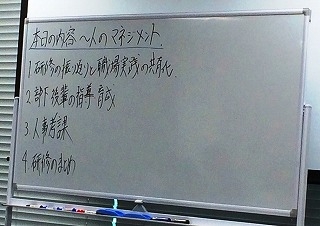 本日の内容 〜人のマネジメント
1. 研修の振り返りと職場実践の共有化
2. 部下後輩の指導育成
3. 人事考課
4. 研修のまとめ